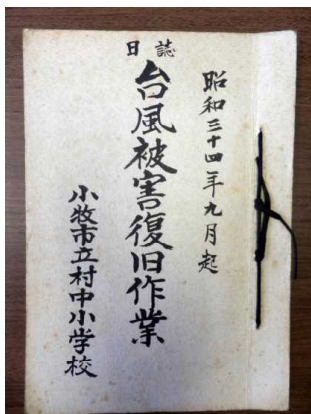 昭和三十四年九月起
日誌
台風被害復旧作業
小牧市立村中小学校